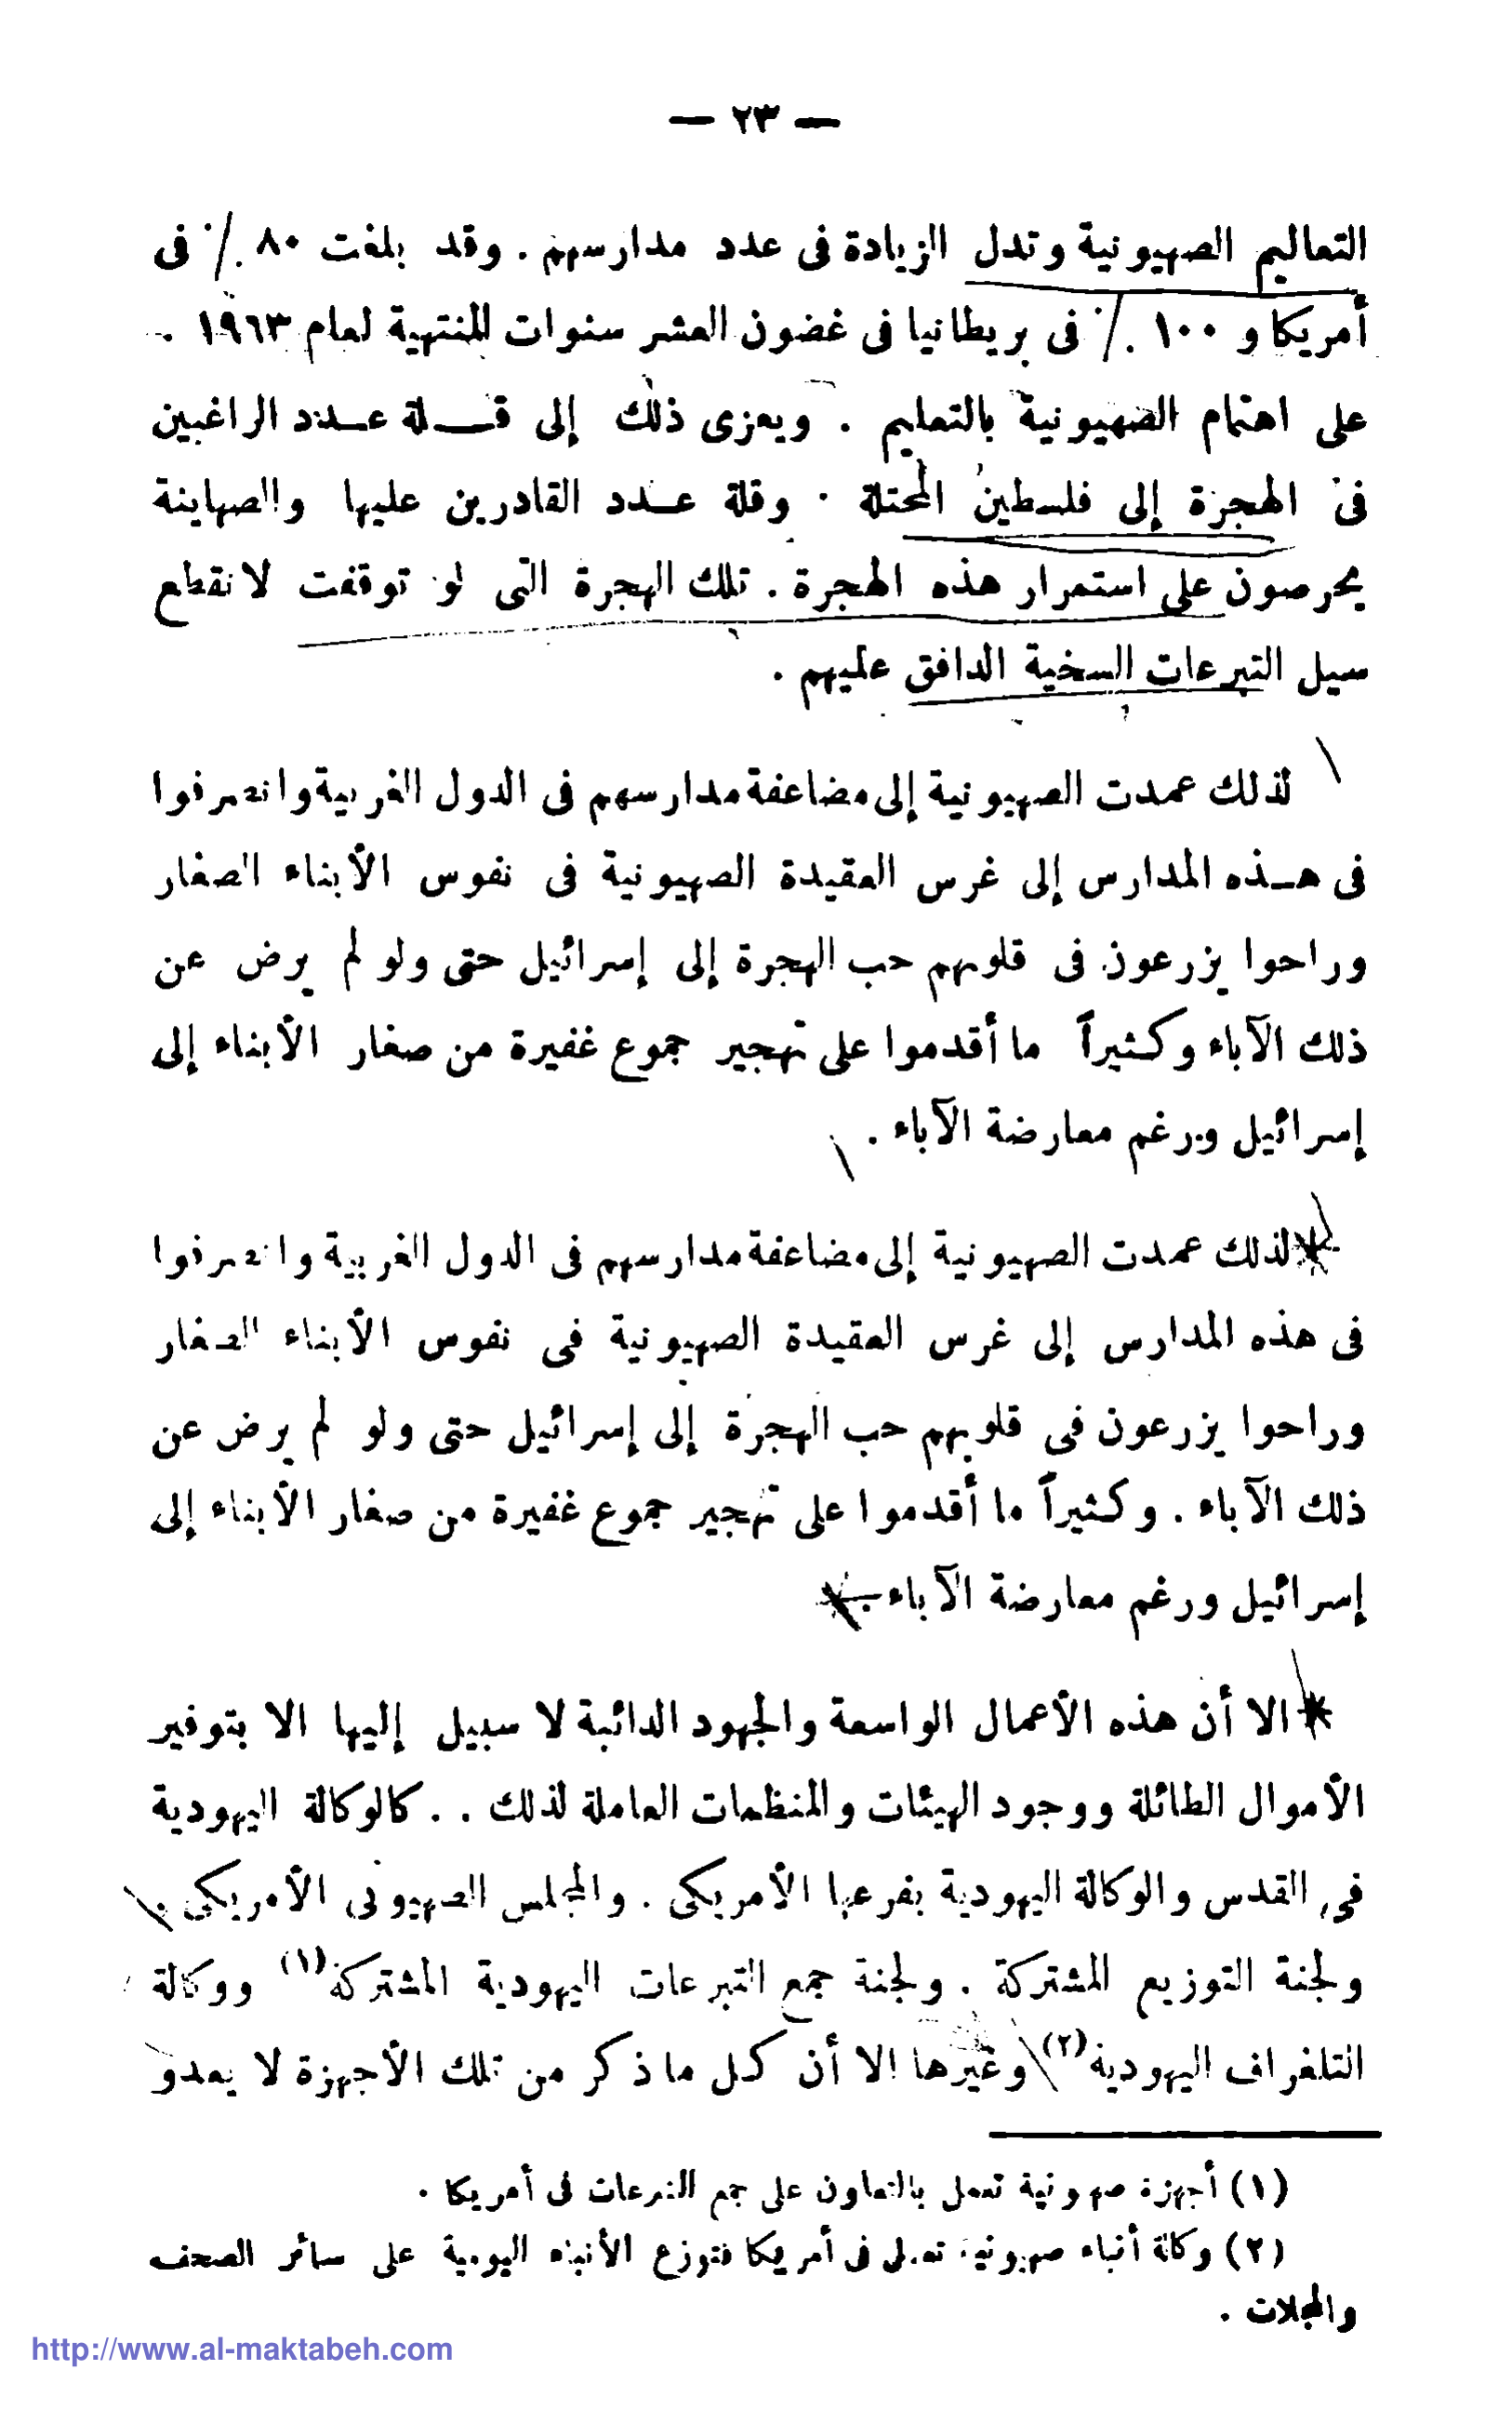 — ٢٣ —
التعاليم الصهيونية وتدل الزيادة فى عدد مدارسهم . وقد بلغت ٨٠ ٪ فى
أمريكا و ١٠٠ ٪ فى بريطانيا فى غضون العشر سنوات المنتهية لعام ١٩٦٣ .
على اهتمام الصهيونية بالتعليم . ويعزى ذلك إلى قلة عدد الراغبين
فى الهجرة إلى فلسطين المحتلة . وقلة عدد القادرين عليها والصهاينة
يحرصون على استمرار هذه الهجرة . تلك الهجرة التى لو توقفت لانقطع
سيل التبرعات السخية الدافق عليهم .
لذلك عمدت الصهيونية إلى مضاعفة مدارسهم فى الدول الغربية وانصرفوا
فى هذه المدارس إلى غرس العقيدة الصهيونية فى نفوس الأبناء الصغار
وراحوا يزرعون فى قلوبهم حب الهجرة إلى إسرائيل حتى ولو لم يرض عن
ذلك الآباء وكثيراً ما أقدموا على تهجير جموع غفيرة من صغار الأبناء إلى
إسرائيل ورغم معارضة الآباء .
لذلك عمدت الصهيونية إلى مضاعفة مدارسهم فى الدول الغربية وانصرفوا
فى هذه المدارس إلى غرس العقيدة الصهيونية فى نفوس الأبناء الصغار
وراحوا يزرعون فى قلوبهم حب الهجرة إلى إسرائيل حتى ولو لم يرض عن
ذلك الآباء . وكثيراً ما أقدموا على تهجير جموع غفيرة من صغار الأبناء إلى
إسرائيل ورغم معارضة الآباء .
الا أن هذه الأعمال الواسعة والجهود الدائبة لا سبيل إليها الا بتوفير
الأموال الطائلة ووجود الهيئات والمنظمات العاملة لذلك . . كالوكالة اليهودية
فى القدس والوكالة اليهودية بفرعها الأمريكى . والمجلس الصهيونى الأمريكى .
ولجنة التوزيع المشتركة . ولجنة جمع التبرعات اليهودية المشتركة (١) ووكالة
التلغراف اليهودية (٢) وغيرها الا أن كل ما ذكر من تلك الأجهزة لا يعدو
(١) أجهزة صهيونية تعمل بالتعاون على جمع التبرعات فى أمريكا .
(٢) وكالة أنباء صهيونية تعمل فى أمريكا فتوزع الأنباء اليومية على سائر الصحف
والمجلات .
http://www.al-maktabeh.com